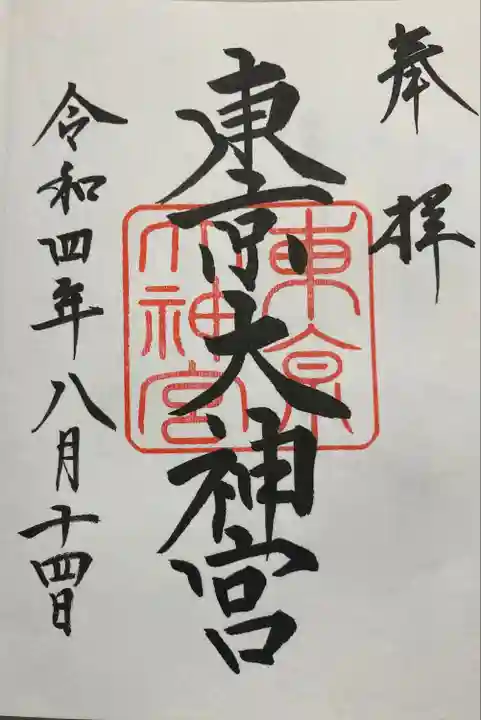 奉拝
東京大神宮
東京
大神宮
令和四年八月十四日